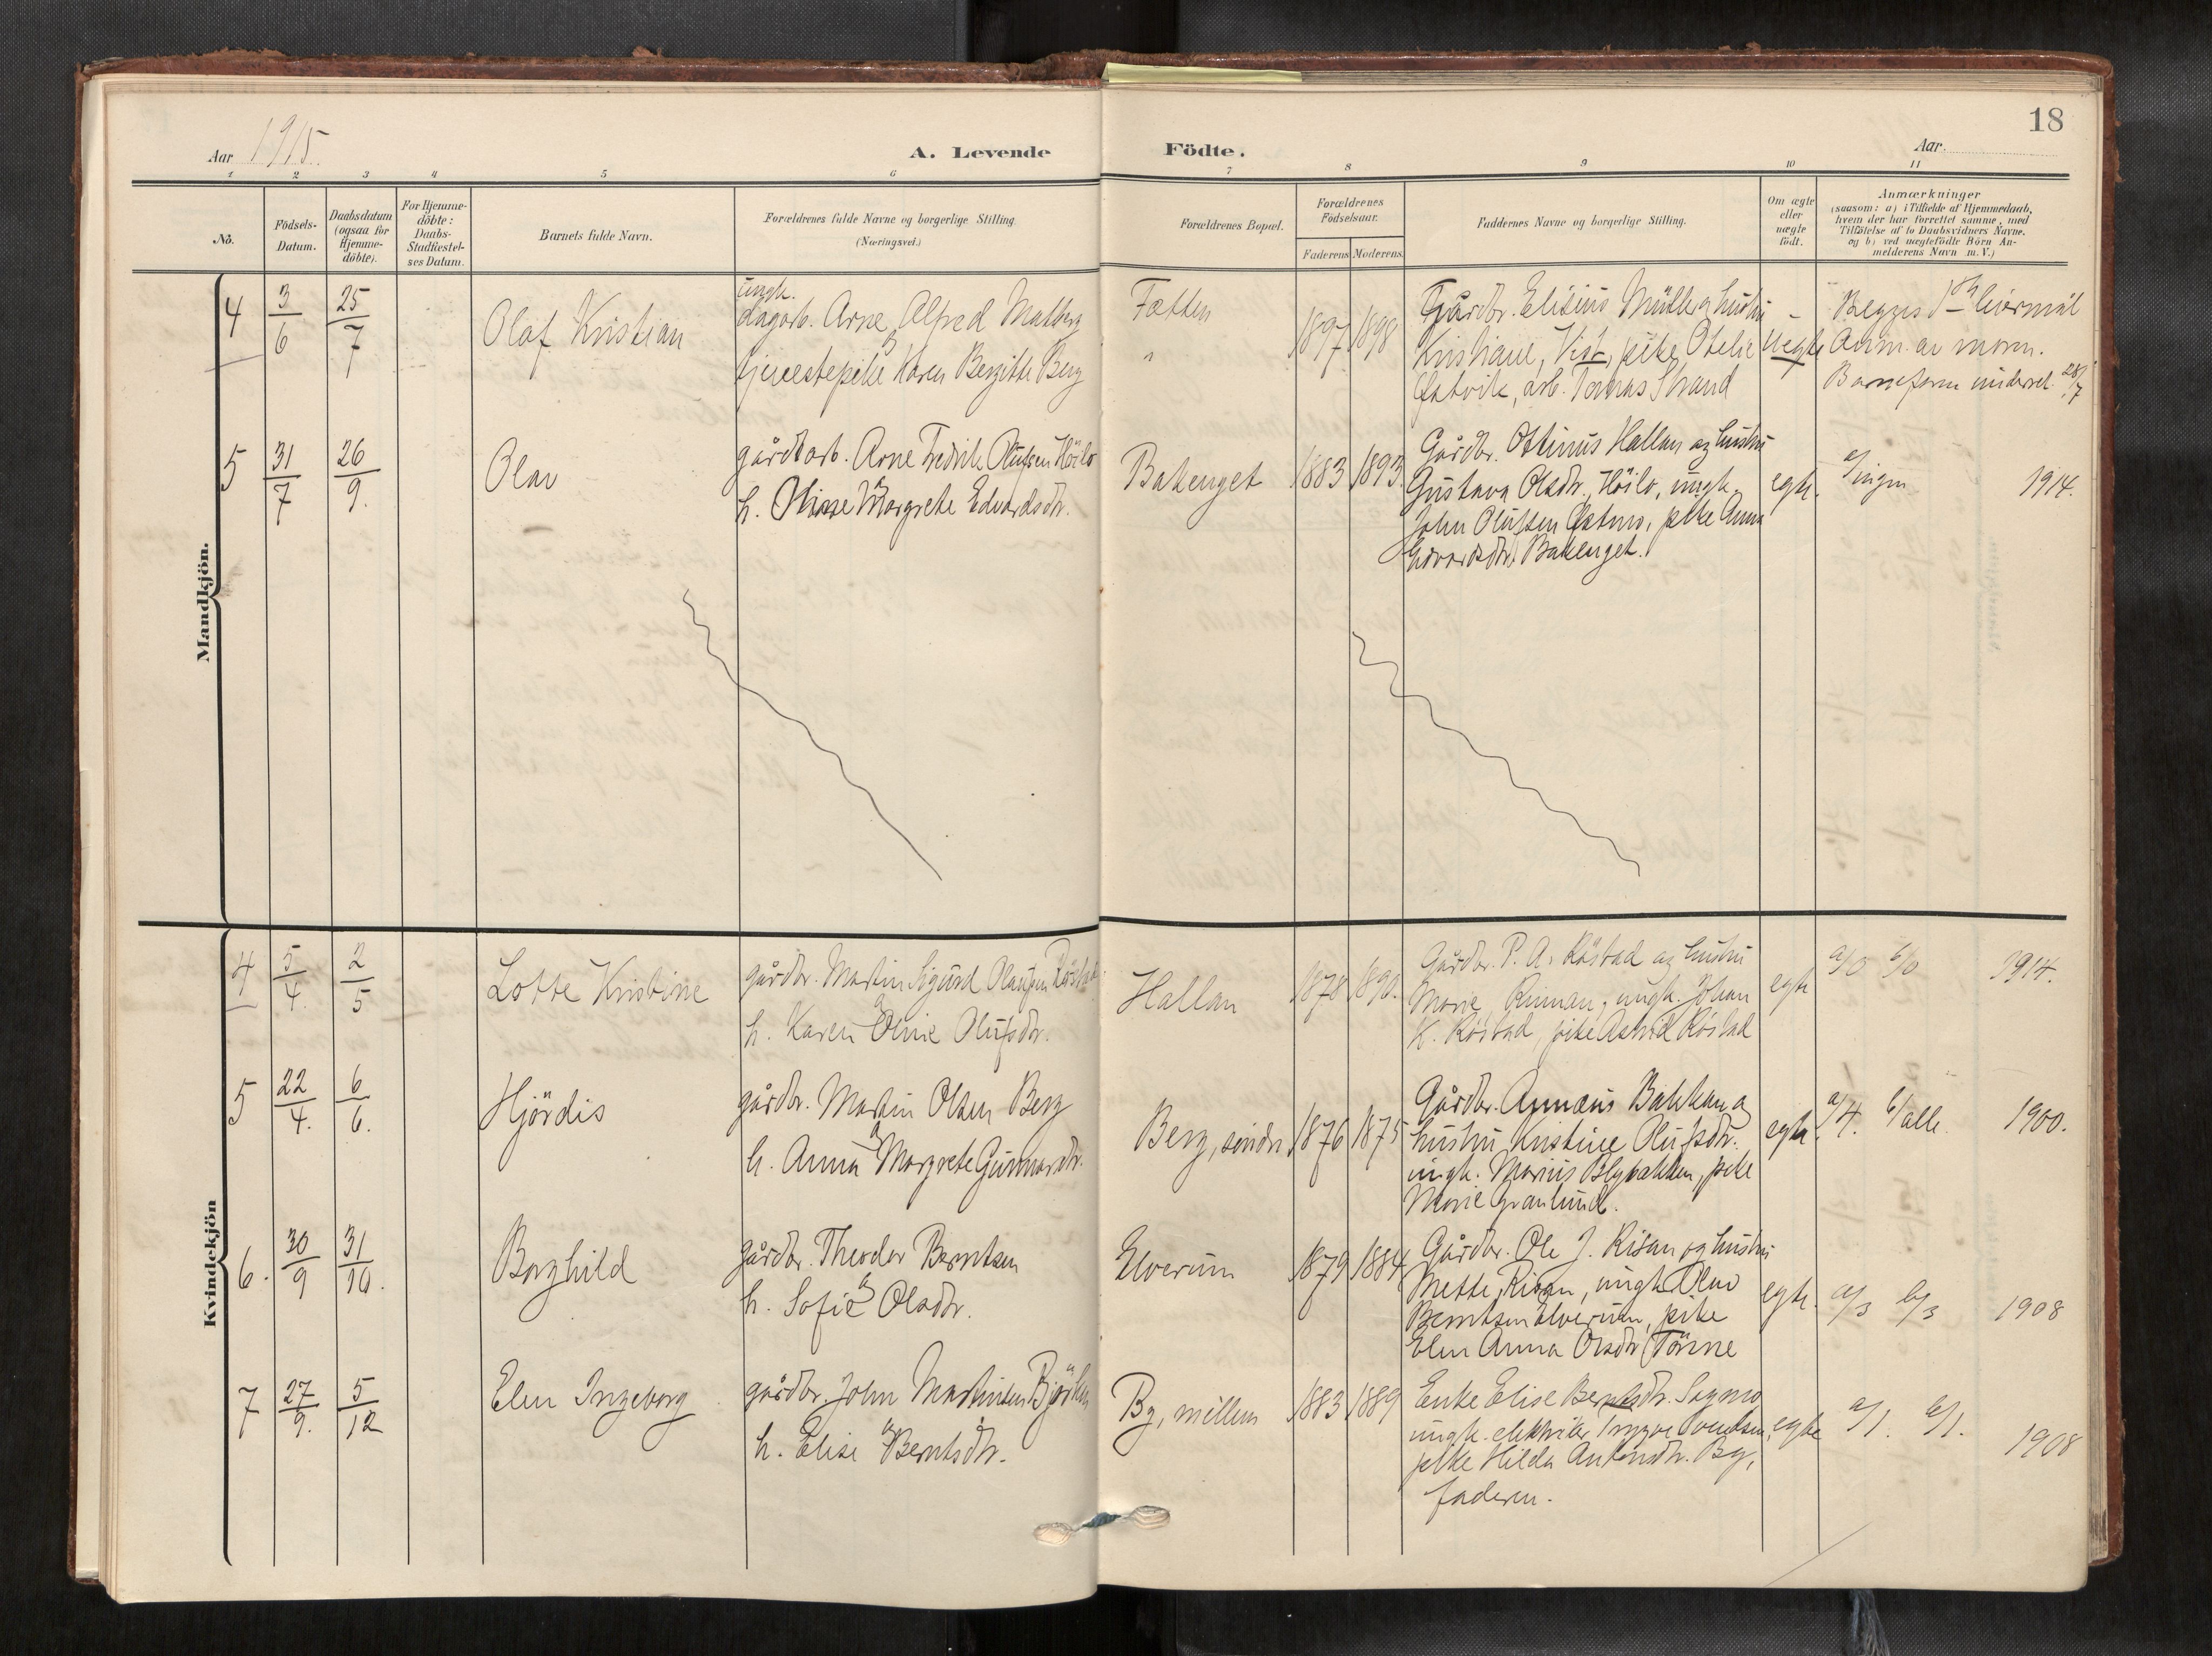 18
Aar 1915.
A. Levende Födte.
Aar.
1 2 3 4 5 6 7 8 9 10 11
No.
Födsels-Datum.
Daabsdatum (ogsaa for Hjemme-döbte).
For Hjemme-döbte: Daabs-Stadfæstel-ses Datum.
Barnets fulde Navn.
Forældrenes fulde Navne og borgerlige Stilling. (Næringsvei.)
Forældrenes Bopæl.
Forældrenes Födselsaar.
Faderens Moderens.
Faddernes Navne og borgerlige Stilling.
Om ægte eller uægte födt.
Anmærkninger
(saasom: a) i Tilfælde af Hjemmedaab,
hvem der har forrettet samme, med
Tilföielse af to Daabsvidners Navne,
og b) ved uægtefödte Börn An-
melderens Navn m. V.)
Mandkjön.
4 3/6 25/7 Olaf Kristian
ungk.
dagarb. Arne Alfred Matberg
og
tjenestepike Karen Bergitte Berg
Fætten
"
1897 1898
Gårdbr. Elisius Müller og hustru
Kristiane, Vist, pike Otelie
arb. Tomas Strand
Uegte
Anm. av moren.
Barnefaren underret. 28/7
5 31/7 26/9. Olav
gårdarb. Arne Fredrik Olufsen Höilo
og
h. Margrete Edvardsdtr.
Bakenget 1883 1893.
Gårdbr. Ottinus Hallan og hustru
Gustava Olsdtr. Höilo, ungk.
John Olufsen, pike Anna
Edvardsdtr. Bakenget.
egte. a/ingen 1914.
Kvindekjön
4 5/4. 2/5 Lotte Kristine
gårdbr. Martin Sigurd Olausen Röstad
og
h. Karen Oline Olufsdtr.
Hallan 1878 1890.
Gårdbr. P. A. Röstad og hustru
Marie, Rinnan, ungk. Johan
K. Röstad, pike Astrid Röstad
egte a/0 b/0 1914.
5 22/4. 6/6. Hjördis
gårdbr. Martin Olsen Berg
og
h. Anna Margrete Gunnarsdtr.
Berg, söndre 1876 1875
Gårdbr. Annæus Bakkan og
hustru Kristine Olufsdtr.
ungk. Marius Blybakken, pike
Marie Granlund.
egte. a/4. b/alle. 1900.
6. 30/9 31/10. Borghild
gårdbr. Theodor Berntsen
og
h. Sofie Olsdtr.
Elverum 1879 1884
Gårdbr. Ole J. Risan og hustru
Mette, Risan, ungk. Olav
Berntsen Elverum, pike
Elen Anna Olsdtr. Tönne
egte. a/3 b/3 1908
7 27/9. 5/12 Elen Ingeborg
gårdbr. John Martinsen
og
h. Elise Berntsdtr.
By, mellem 1883 1889
Enke Elise Berntsdtr. Sagmo
ungk. elektriker Trygve
pike Hilda Antonsdtr. By,
faderen.
egte a/1. b/1. 1908